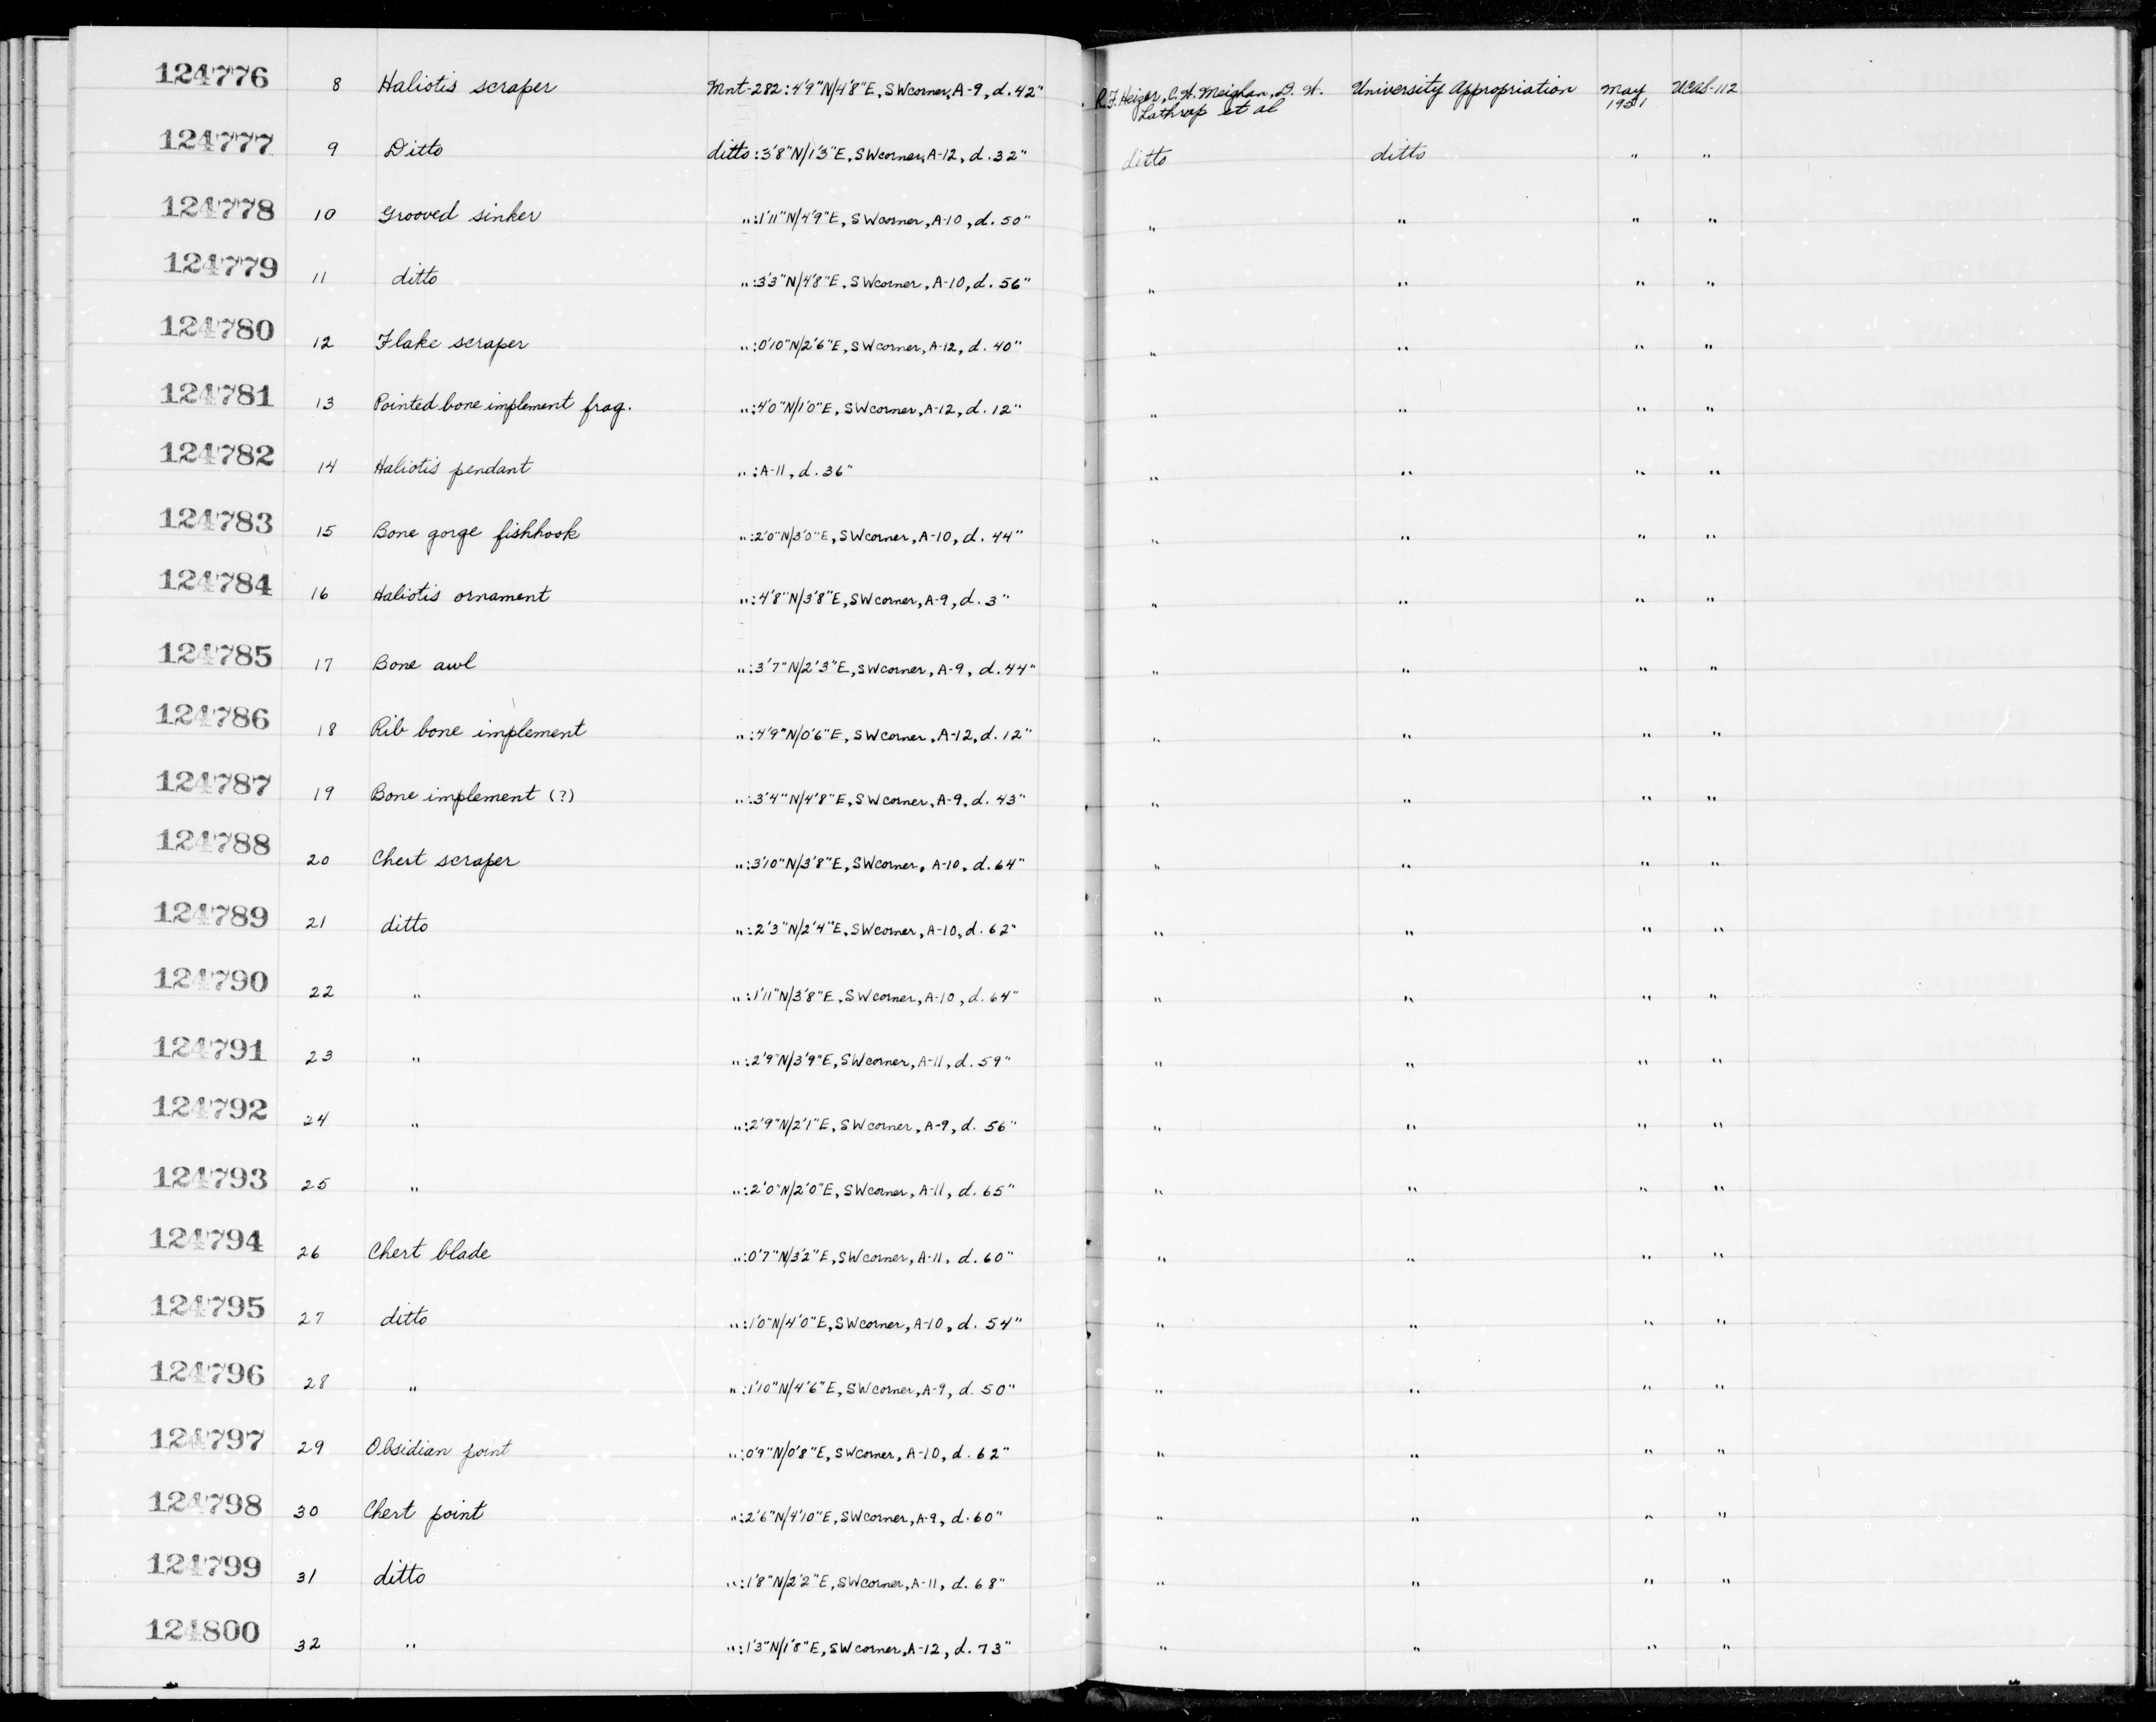 124776 8 Haliotis scraper Mnt-282:4'9"N/4'8"E, SWcorner, A-9, d. 42" R.F. Heizer, C.W. Meighan, D. W. University Appropriation May UCAS-112
Lathrap et al 1951
124777 9 Ditto ditto:3'8"N/1'3"E, SWcorner, A-12, d. 32" ditto ditto " "
124778 10 Grooved sinker ":1'11"N/4'9"E, SWcorner, A-10, d. 50" " " " "
124779 11 ditto ":3'3"N/4'8"E, SWcorner, A-10, d. 56" " " " "
124780 12 Flake scraper ":0'10"N/2'6"E, SWcorner, A-12, d. 40" " " " "
124781 13 Pointed bone implement frag. ":4'0"N/1'0"E, SWcorner, A-12, d. 12" " " " "
124782 14 Haliotis pendant ":A-11, d. 36" " " " "
124783 15 Bone gorge fishhook ":2'0"N/3'0"E, SWcorner, A-10, d. 44" " " " "
124784 16 Haliotis ornament ":4'8"N/3'8"E, SWcorner, A-9, d. 3" " " " "
124785 17 Bone awl ":3'7"N/2'3"E, SWcorner, A-9, d. 44" " " " "
124786 18 Rib bone implement ":4'9"N/0'6"E, SWcorner, A-12, d. 12" " " " "
124787 19 Bone implement (?) ":3'4"N/4'8"E, SWcorner, A-9, d. 43" " " " "
124788 20 Chert scraper ":3'10"N/3'8"E, SWcorner, A-10, d. 64" " " " "
124789 21 ditto ":2'3"N/2'4"E, SWcorner, A-10, d. 62" " " " "
124790 22 " ":1'11"N/3'8"E, SWcorner, A-10, d. 64" " " " "
124791 23 " ":2'9"N/3'9"E, SWcorner, A-11, d. 59" " " " "
124792 24 " ":2'9"N/2'1"E, SWcorner, A-9, d. 56" " " " "
124793 25 " ":2'0"N/2'0"E, SWcorner, A-11, d. 65" " " " "
124794 26 Chert blade ":0'7"N/3'2"E, SWcorner, A-11, d. 60" " " " "
124795 27 ditto ":1'0"N/4'0"E, SWcorner, A-10, d. 54" " " " "
124796 28 " ":1'10"N/4'6"E, SWcorner, A-9, d. 50" " " " "
124797 29 Obsidian point ":0'9"N/0'8"E, SWcorner, A-10, d. 62" " " " "
124798 30 Chert point ":2'6"N/4'10"E, SWcorner, A-9, d. 60" " " " "
124799 31 ditto ":1'8"N/2'2"E, SWcorner, A-11, d. 68" " " " "
124800 32 " ":1'3"N/1'8"E, SWcorner, A-12, d. 73" " " " "